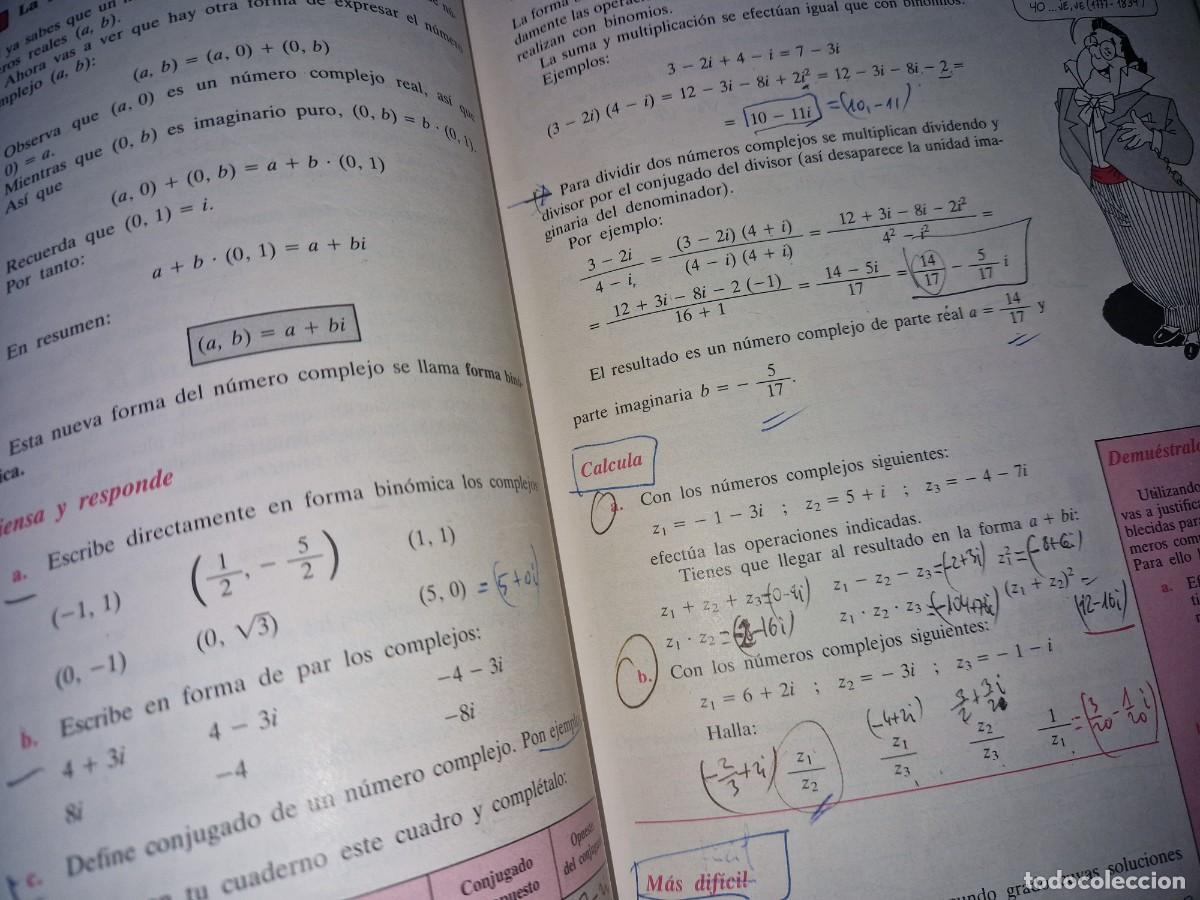 ya sabes que un
eros reales (a, b).
Ahora vas a ver que hay otra forma de expresar el número
mplejo (a, b):
(a, b) = (a, 0) + (0, b)
Observa que (a, 0) es un número complejo real, así que
0) = a.
Mientras que (0, b) es imaginario puro, (0, b) = b · (0, 1).
Así que
(a, 0) + (0, b) = a + b · (0, 1)
Recuerda que (0, 1) = i.
Por tanto:
a + b · (0, 1) = a + bi
En resumen:
(a, b) = a + bi
Esta nueva forma del número complejo se llama forma binó-
ica.
iensa y responde
a. Escribe directamente en forma binómica los complejos
(−1, 1) (1/2, − 5/2) (1, 1)
(0, −1) (0, √3) (5, 0) = (5+0i)
b. Escribe en forma de par los complejos:
4 + 3i 4 − 3i −4 − 3i
8i −4 −8i
c. Define conjugado de un número complejo. Pon ejemplos
tu cuaderno este cuadro y complétalo:
Conjugado
puesto
Opuesto
del conjugado
La forma
damente las opera
realizan con binomios.
La suma y multiplicación se efectúan igual que con binomios.
Ejemplos:
3 − 2i + 4 − i = 7 − 3i
(3 − 2i) (4 − i) = 12 − 3i − 8i + 2i² = 12 − 3i − 8i − 2 =
= 10 − 11i =(10,-11)
Para dividir dos números complejos se multiplican dividendo y
divisor por el conjugado del divisor (así desaparece la unidad ima-
ginaria del denominador).
Por ejemplo:
3 − 2i / 4 − i, = (3 − 2i) (4 + i) / (4 − i) (4 + i) = 12 + 3i − 8i − 2i² / 4² − i² =
= 12 + 3i − 8i − 2 (−1) / 16 + 1 = 14 − 5i / 17 = 14/17 − 5/17 i
El resultado es un número complejo de parte real a = 14/17 y
parte imaginaria b = − 5/17.
Calcula
a. Con los números complejos siguientes:
z₁ = − 1 − 3i ; z₂ = 5 + i ; z₃ = − 4 − 7i
efectúa las operaciones indicadas.
Tienes que llegar al resultado en la forma a + bi:
z₁ + z₂ + z₃ =(0-9i) z₁ − z₂ − z₃ =(-2+3i) z₁² =(-8+6i)
z₁ · z₂ = z₁ · z₂ · z₃ = (z₁ + z₂)² =
(12-16i)
b. Con los números complejos siguientes:
z₁ = 6 + 2i ; z₂ = − 3i ; z₃ = − 1 − i
Halla:
(-2/3+2i) z₁/z₂ (-4+2i) z₁/z₃ z₂/z₃ 1/z₁ =(3/20 - 1/20 i)
Más difícil
soluciones
YO... JE, JE (1777-1834)
Demuéstralo
Utilizando
vas a justifica
blecidas par
meros com
Para ello
a.
todocoleccion